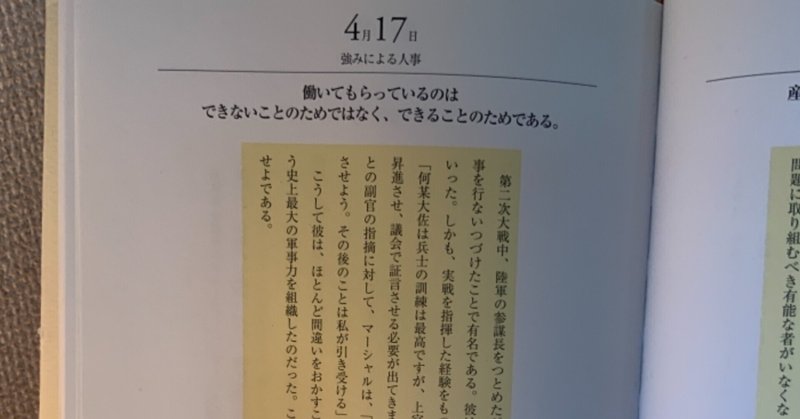 4月17日
強みによる人事
働いてもらっているのは
できないことのためではなく、できることのためである。
第二次大戦中、陸軍の参謀長をつとめた
事を行ないつづけたことで有名である。彼
いった。しかも、実戦を指揮した経験をも
「何某大佐は兵士の訓練は最高ですが、上
昇進させ、議会で証言させる必要が出てきま
との副官の指摘に対して、マーシャルは、「
させよう。その後のことは私が引き受ける」
こうして彼は、ほとんど間違いをおかすこ
う史上最大の軍事力を組織したのだった。こ
せよである。
産
問題に取り組むべき有能な者がいなくな